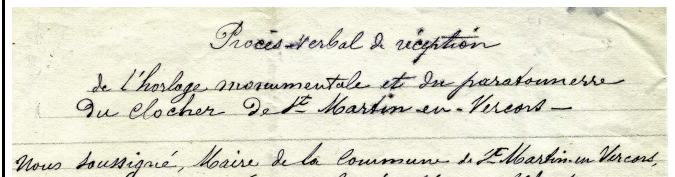 Procès-verbal de réception
de l'horloge monumentale et du paratonnerre
du clocher de St Martin-en-Vercors —
Nous soussigné, Maire de la Commune de St Martin-en-Vercors,